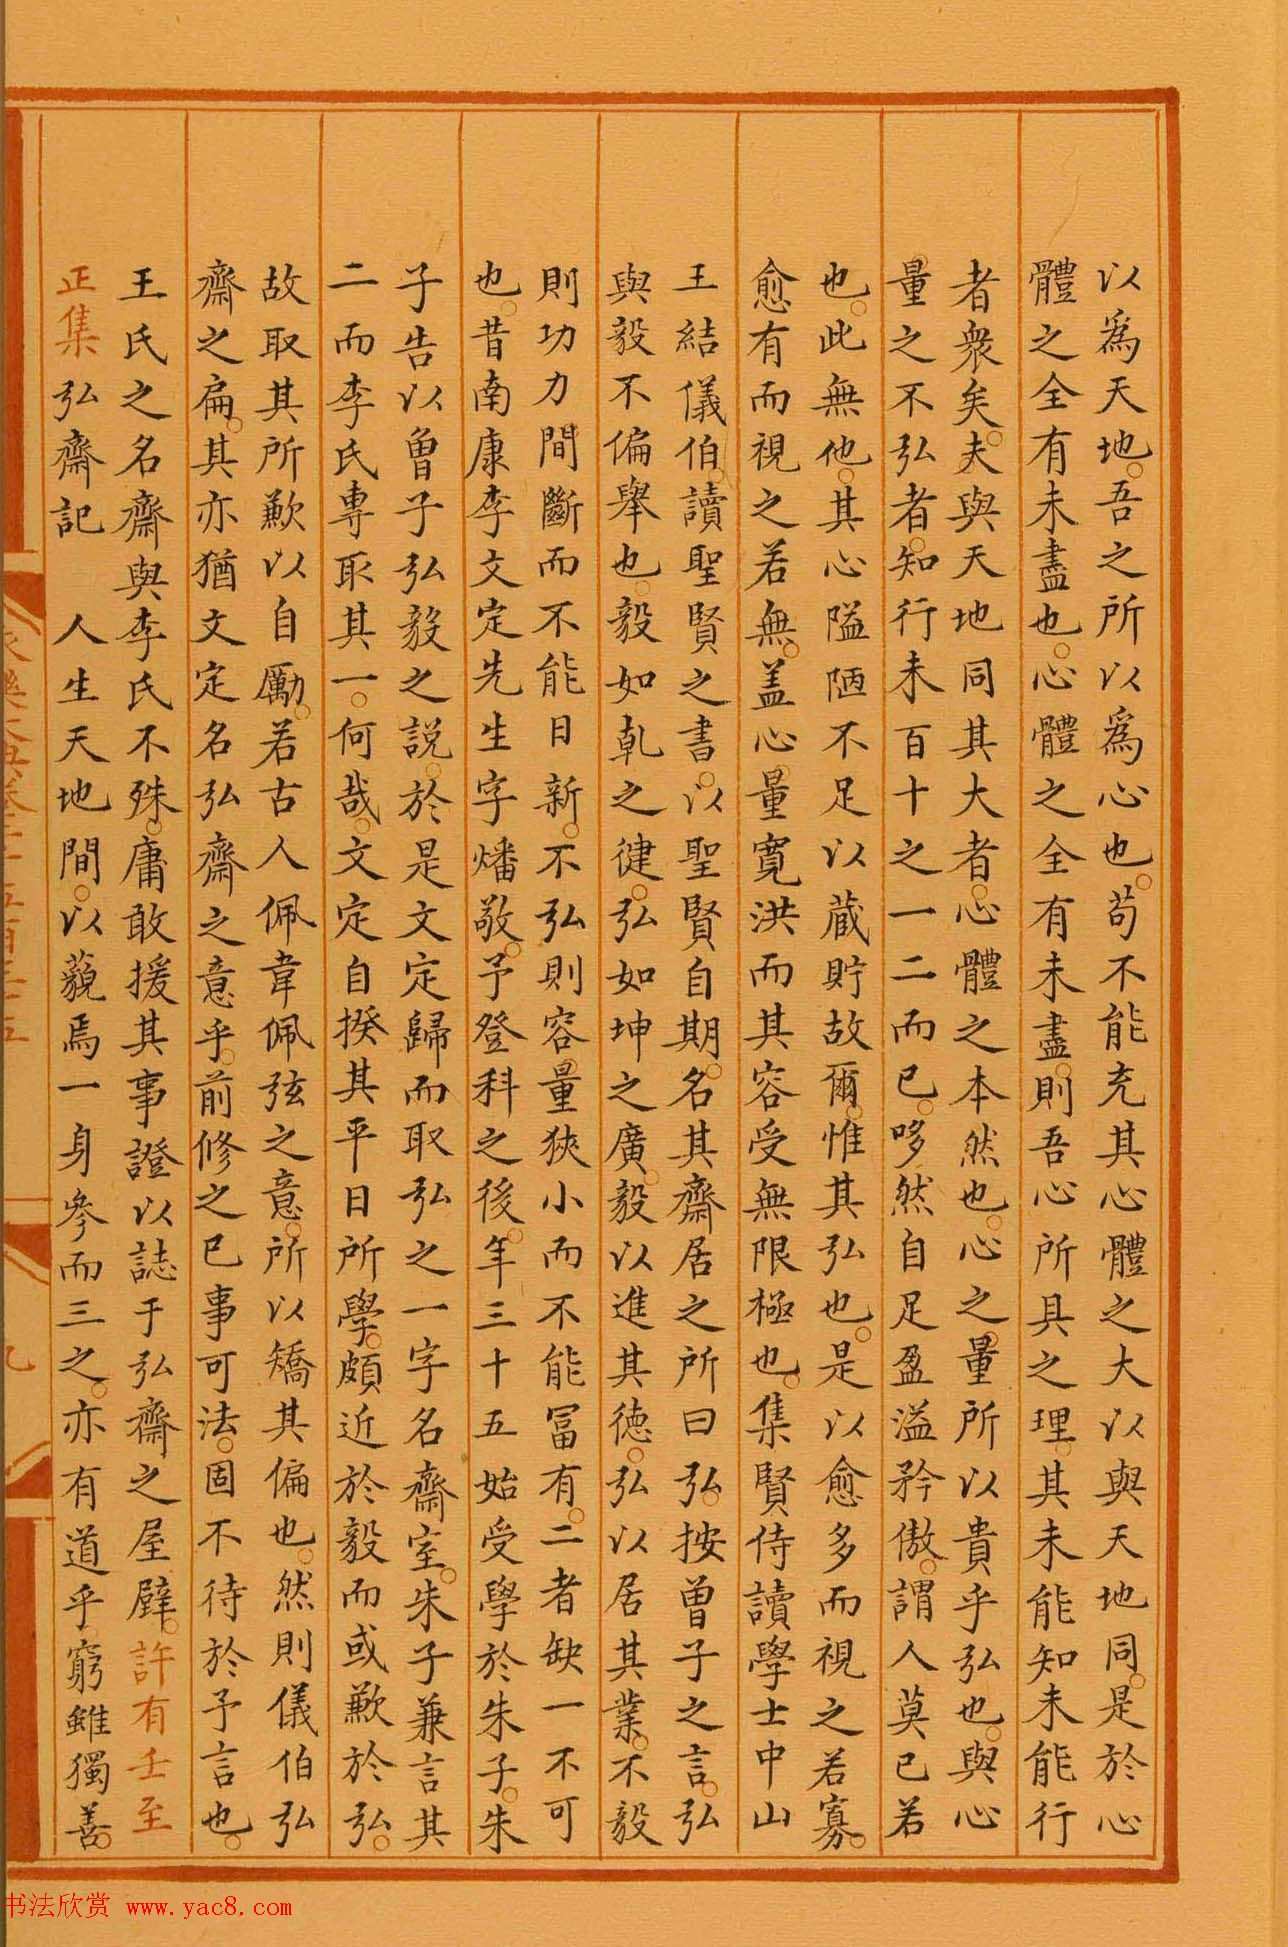 以爲天地吾之所以爲心也苟不能充其心體之大以與天地同是於心
體之全有未盡也心體之全有未盡則吾心所具之理其未能知未能行
者衆矣夫與天地同其大者心體之本然也心之量所以貴乎弘也與心
量之不弘者知行未百十之一二而已哆然自足盈溢矜傲謂人莫已若
也此無他其心隘陋不足以藏貯故爾惟其弘也是以愈多而視之若寡
愈有而視之若無蓋心量寬洪而其容受無限極也集賢侍讀學士中山
王結儀伯讀聖賢之書以聖賢自期名其齋居之所曰弘按曾子之言弘
與毅不偏舉也毅如乾之健弘如坤之廣毅以進其德弘以居其業不毅
則功力間斷而不能日新不弘則容量狹小而不能冨有二者缺一不可
也昔南康李文定先生字燔敬予登科之後年三十五始受學於朱子朱
子告以曾子弘毅之說於是文定歸而取弘之一字名齋室朱子兼言其
二而李氏專取其一何哉文定自揆其平日所學頗近於毅而或歉於弘
故取其所歉以自勵若古人佩韋佩弦之意所以矯其偏也然則儀伯弘
齋之扁其亦猶文定名弘齋之意乎前修之已事可法固不待於予言也
王氏之名齋與李氏不殊庸敢援其事證以誌于弘齋之屋壁許有壬至
正集弘齋記 人生天地間以藐焉一身參而三之亦有道乎窮雖獨善
書法欣赏 www.yac8.com